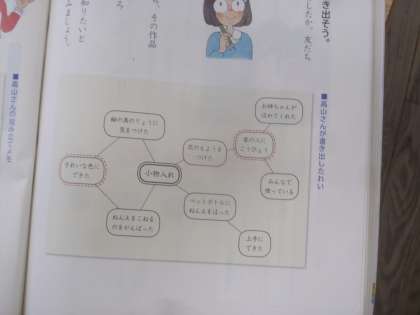 き出そう。
したか。友だち
、その作品
ろ
知りたいと
みましょう。
■高山さんが書き出したれい
お姉ちゃんが
ほめてくれた
絵の具のりょうに
気をつけた
花のもようを
つけた
家の人に
こうひょう
きれいな色に
できた
小物入れ
みんなで
使っている
ペットボトルに
ねんどをはった
ねんどをこねる
のをがんばった
上手に
できた
■高山さんの組み立てメモ